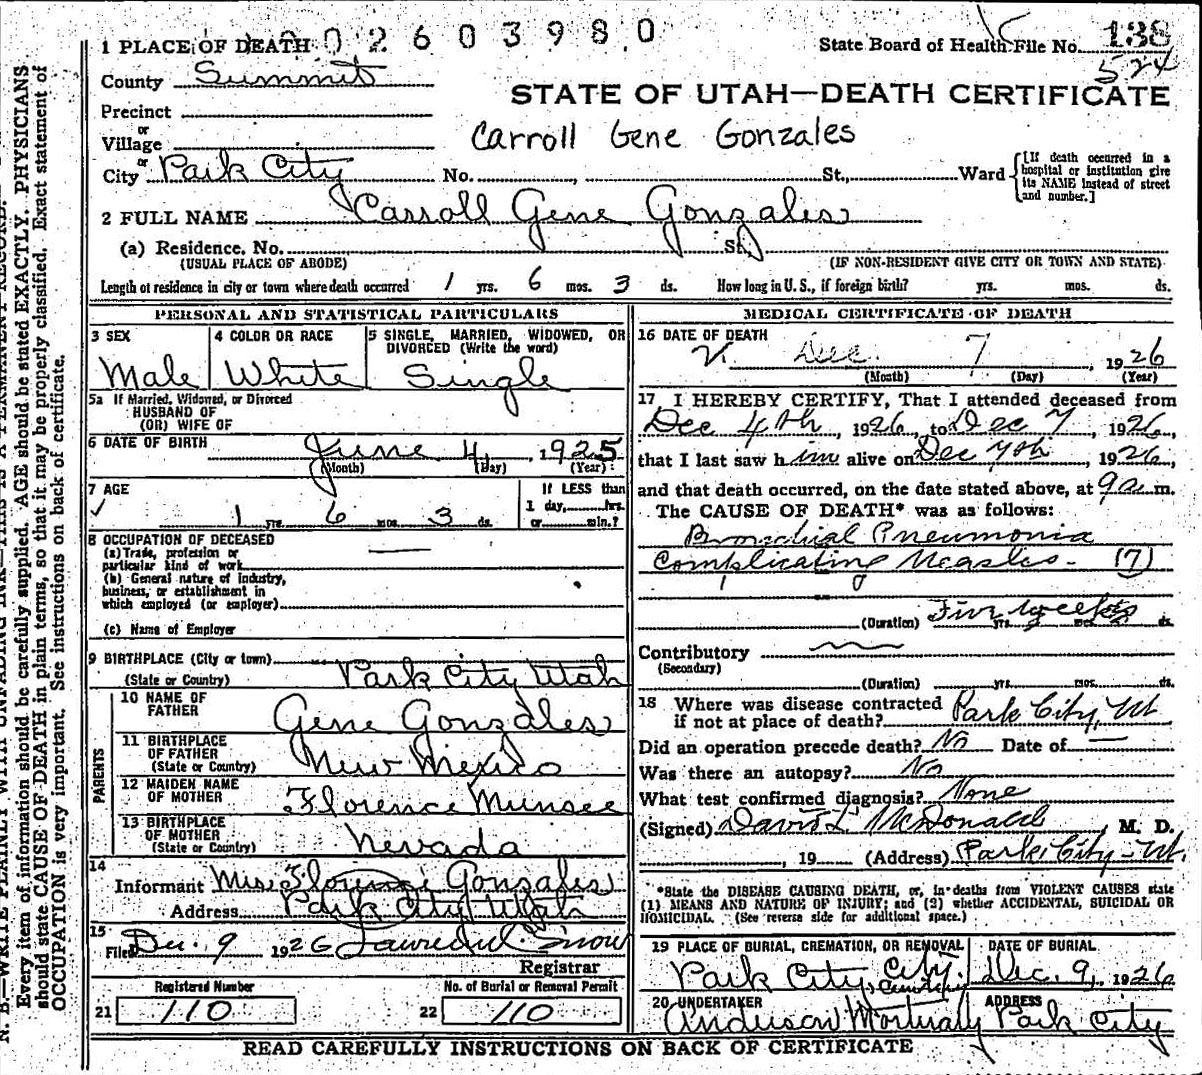 0 2 6 0 3 9 8 0
1 PLACE OF DEATH
State Board of Health File No. 138
524
County Summit
STATE OF UTAH—DEATH CERTIFICATE
Precinct
or
Village
Carroll Gene Gonzales
or
City Park City No. , St., Ward
[If death occurred in a
hospital or institution give
its NAME instead of street
and number.]
2 FULL NAME Carroll Gene Gonzales
(a) Residence. No. St.
(USUAL PLACE OF ABODE) (IF NON-RESIDENT GIVE CITY OR TOWN AND STATE)
Length of residence in city or town where death occurred 1 yrs. 6 mos. 3 ds. How long in U. S., if foreign birth? yrs. mos. ds.
PERSONAL AND STATISTICAL PARTICULARS
3 SEX
Male
4 COLOR OR RACE
White
5 SINGLE, MARRIED, WIDOWED, OR
DIVORCED (Write the word)
Single
5a If Married, Widowed, or Divorced
HUSBAND OF
(OR) WIFE OF
6 DATE OF BIRTH June 4, 1925
(Month) (Day) (Year)
7 AGE
1 yrs. 6 mos. 3 ds.
If LESS than
1 day, hrs.
or min.?
8 OCCUPATION OF DECEASED
(a) Trade, profession or
particular kind of work —
(b) General nature of industry,
business, or establishment in
which employed (or employer)
(c) Name of Employer
9 BIRTHPLACE (City or town)
(State or Country) Park City Utah
PARENTS
10 NAME OF
FATHER Gene Gonzales
11 BIRTHPLACE
OF FATHER
(State or Country) New Mexico
12 MAIDEN NAME
OF MOTHER Florence Munsee
13 BIRTHPLACE
OF MOTHER
(State or Country) Nevada
14
Informant Mrs. Florence Gonzales
Address Park City Utah
15
Filed Dec. 9 1926
Snow
Registrar
Registered Number
21 110
No. of Burial or Removal Permit
22 110
MEDICAL CERTIFICATE OF DEATH
16 DATE OF DEATH
Dec. 7 1926
(Month) (Day) (Year)
17 I HEREBY CERTIFY, That I attended deceased from
Dec 4th, 1926, to Dec 7, 1926,
that I last saw h im alive on Dec 7th, 1926,
and that death occurred, on the date stated above, at 9 a.m.
The CAUSE OF DEATH* was as follows:
Bronchial Pneumonia
Complicating Measles - (7)
(Duration) Five weeks yrs. mos. ds.
Contributory
(Secondary)
(Duration) yrs. mos. ds.
18 Where was disease contracted
if not at place of death? Park City, Ut
Did an operation precede death? No Date of —
Was there an autopsy? No
What test confirmed diagnosis? None
(Signed) David L McDonald, M. D.
, 19 (Address) Park City - Ut.
*State the DISEASE CAUSING DEATH, or, in deaths from VIOLENT CAUSES state
(1) MEANS AND NATURE OF INJURY; and (2) whether ACCIDENTAL, SUICIDAL OR
HOMICIDAL. (See reverse side for additional space.)
19 PLACE OF BURIAL, CREMATION, OR REMOVAL
Park City, City Cemetery
DATE OF BURIAL
Dec. 9, 1926
20 UNDERTAKER
Anderson Mortuary
ADDRESS
Park City
READ CAREFULLY INSTRUCTIONS ON BACK OF CERTIFICATE
N. B.—WRITE PLAINLY WITH UNFADING INK—THIS IS A PERMANENT RECORD.
Every item of information should be carefully supplied. AGE should be stated EXACTLY. PHYSICIANS
should state CAUSE OF DEATH in plain terms, so that it may be properly classified. Exact statement of
OCCUPATION is very important. See instructions on back of certificate.